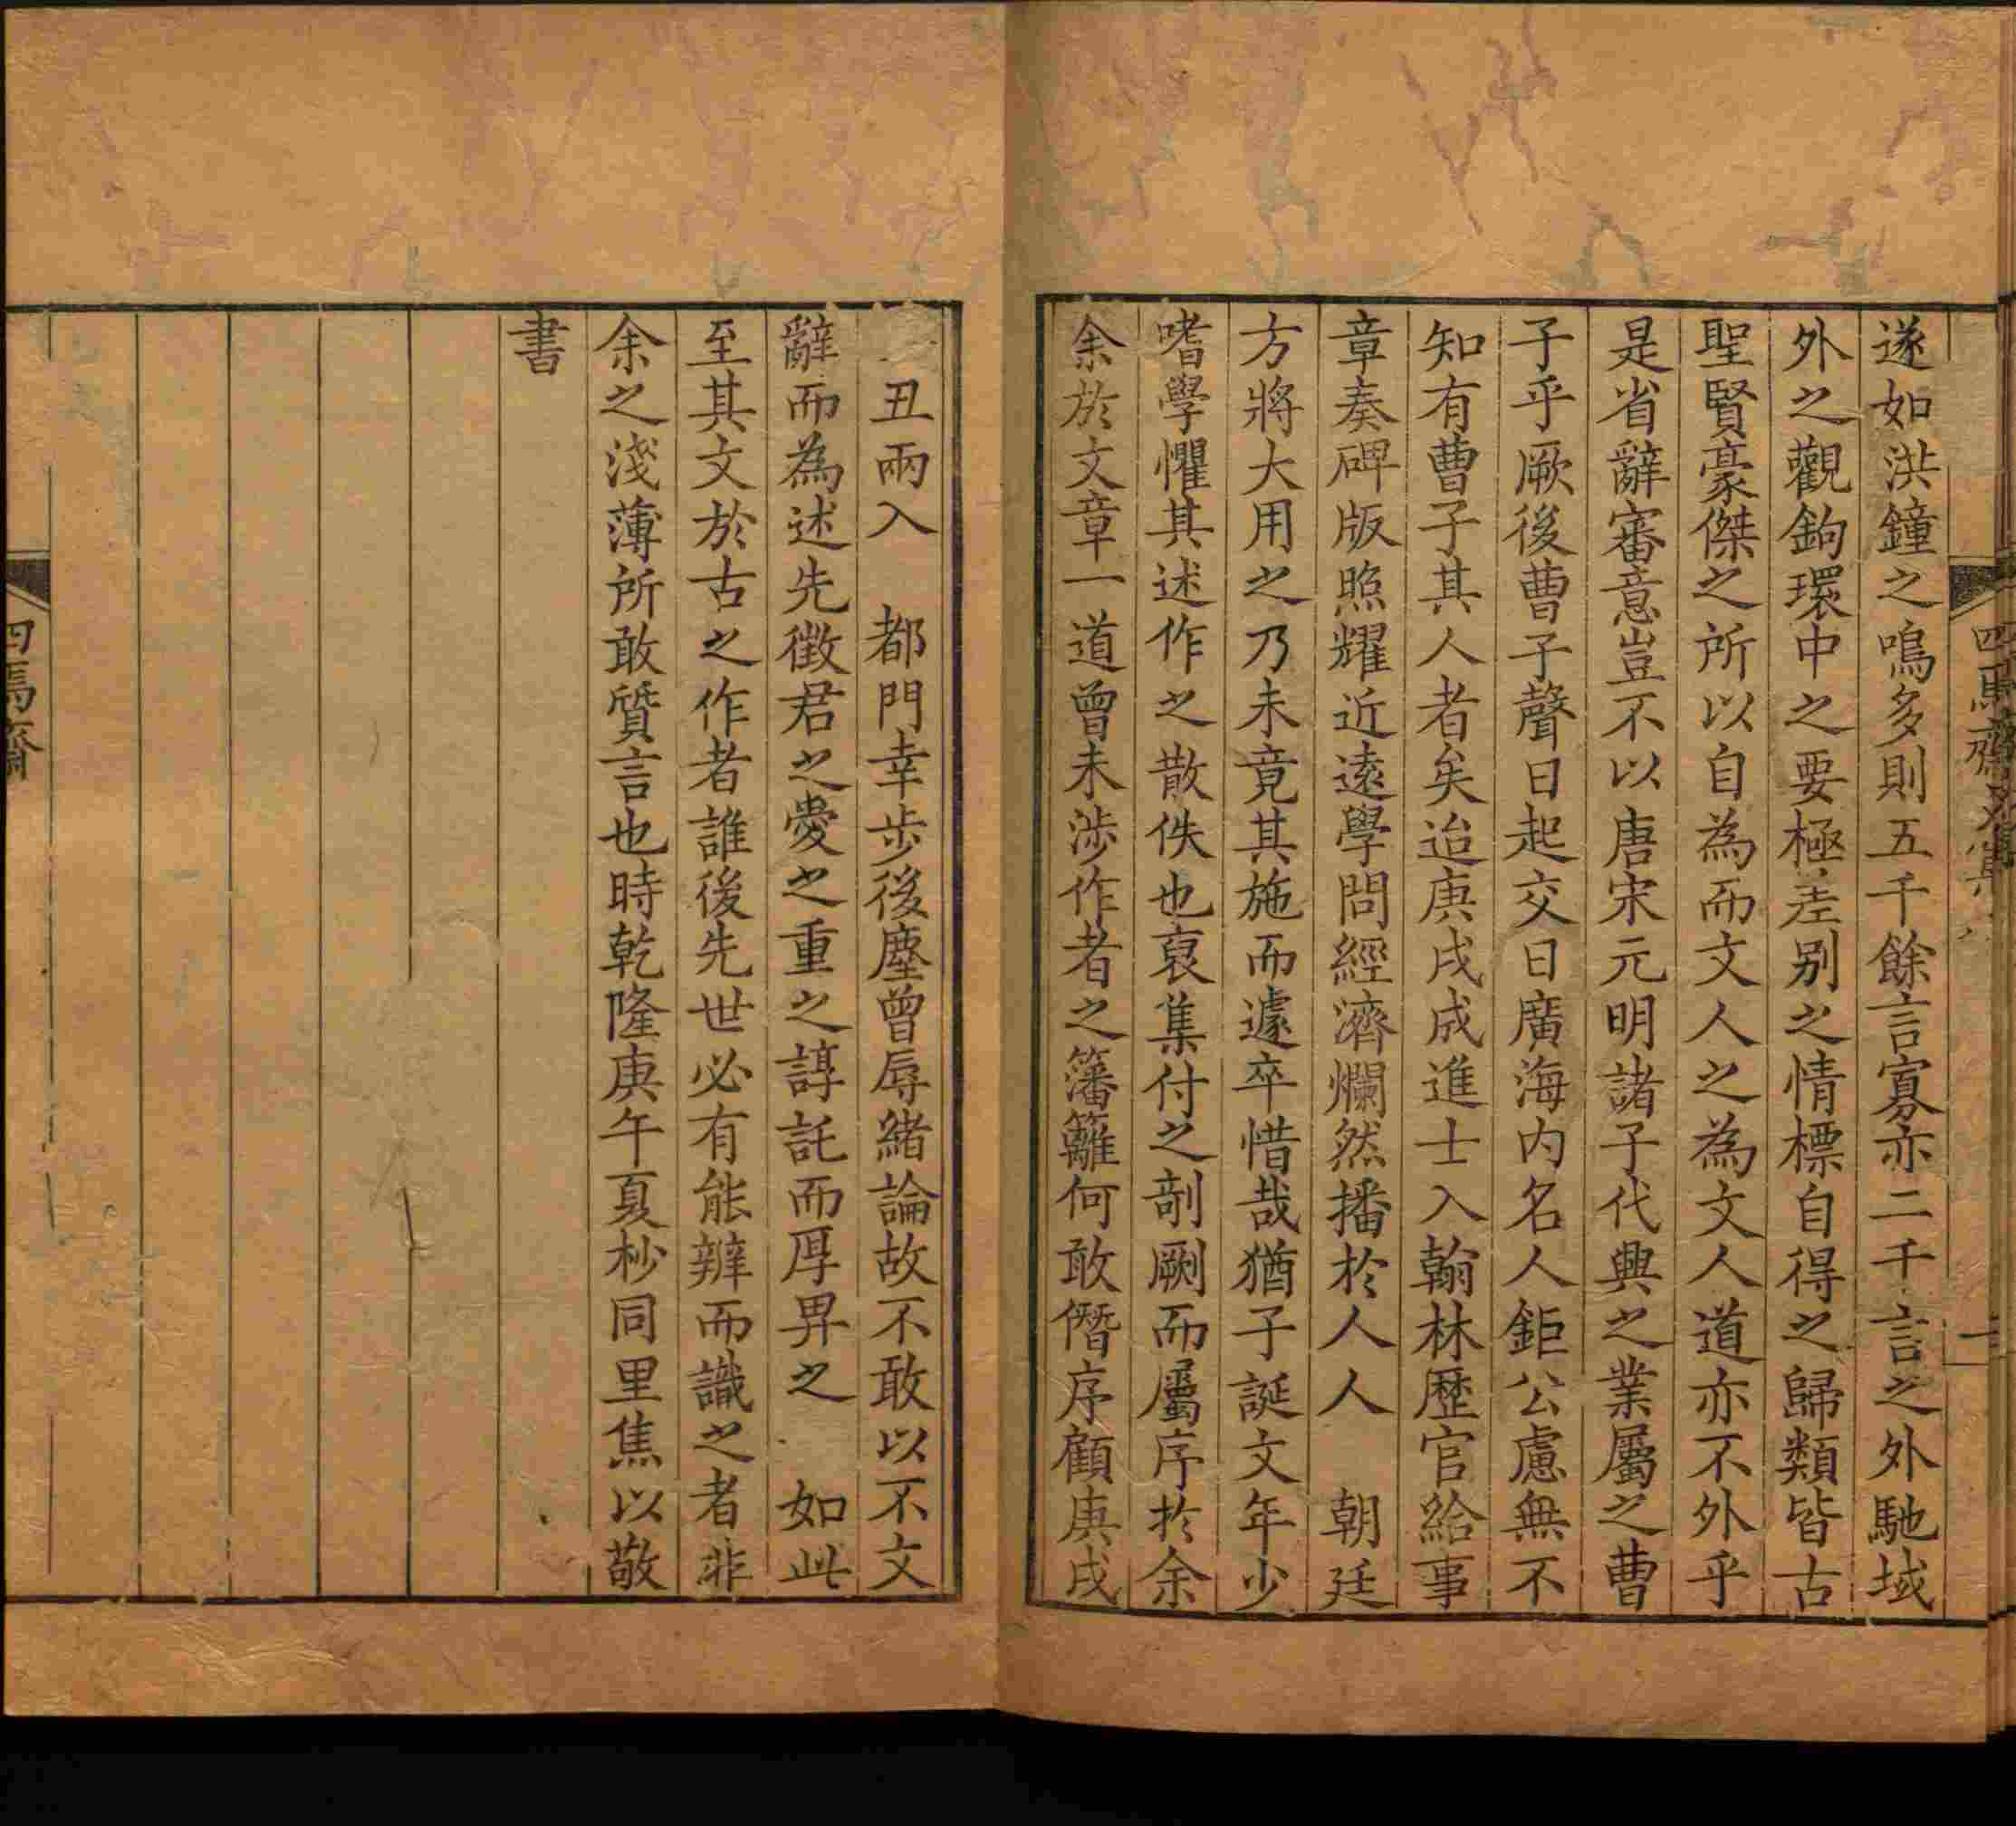 遂如洪鐘之鳴多則五千餘言寡亦二千言之外馳域
外之觀鉤環中之要極差别之情標自得之歸類皆古
聖賢豪傑之所以自為而文人之為文人道亦不外乎
是省辭審意豈不以唐宋元明諸子代興之業屬之曹
子乎厥後曹子聲日起交日廣海内名人鉅公慮無不
知有曹子其人者矣迨庚戌成進士入翰林歷官給事
章奏碑版照耀近遠學問經濟爛然播於人人　朝廷
方將大用之乃未竟其施而遽卒惜哉猶子誕文年少
嗜學懼其述作之散佚也裒集付之剞劂而屬序於余
余於文章一道曾未涉作者之籓籬何敢僭序顧庚戌
丑兩入　都門幸步後塵曾辱緒論故不敢以不文
辭而為述先徵君之愛之重之諄託而厚畀之　如此
至其文於古之作者誰後先世必有能辨而識之者非
余之淺薄所敢質言也時乾隆庚午夏杪同里焦以敬
書
四焉齋